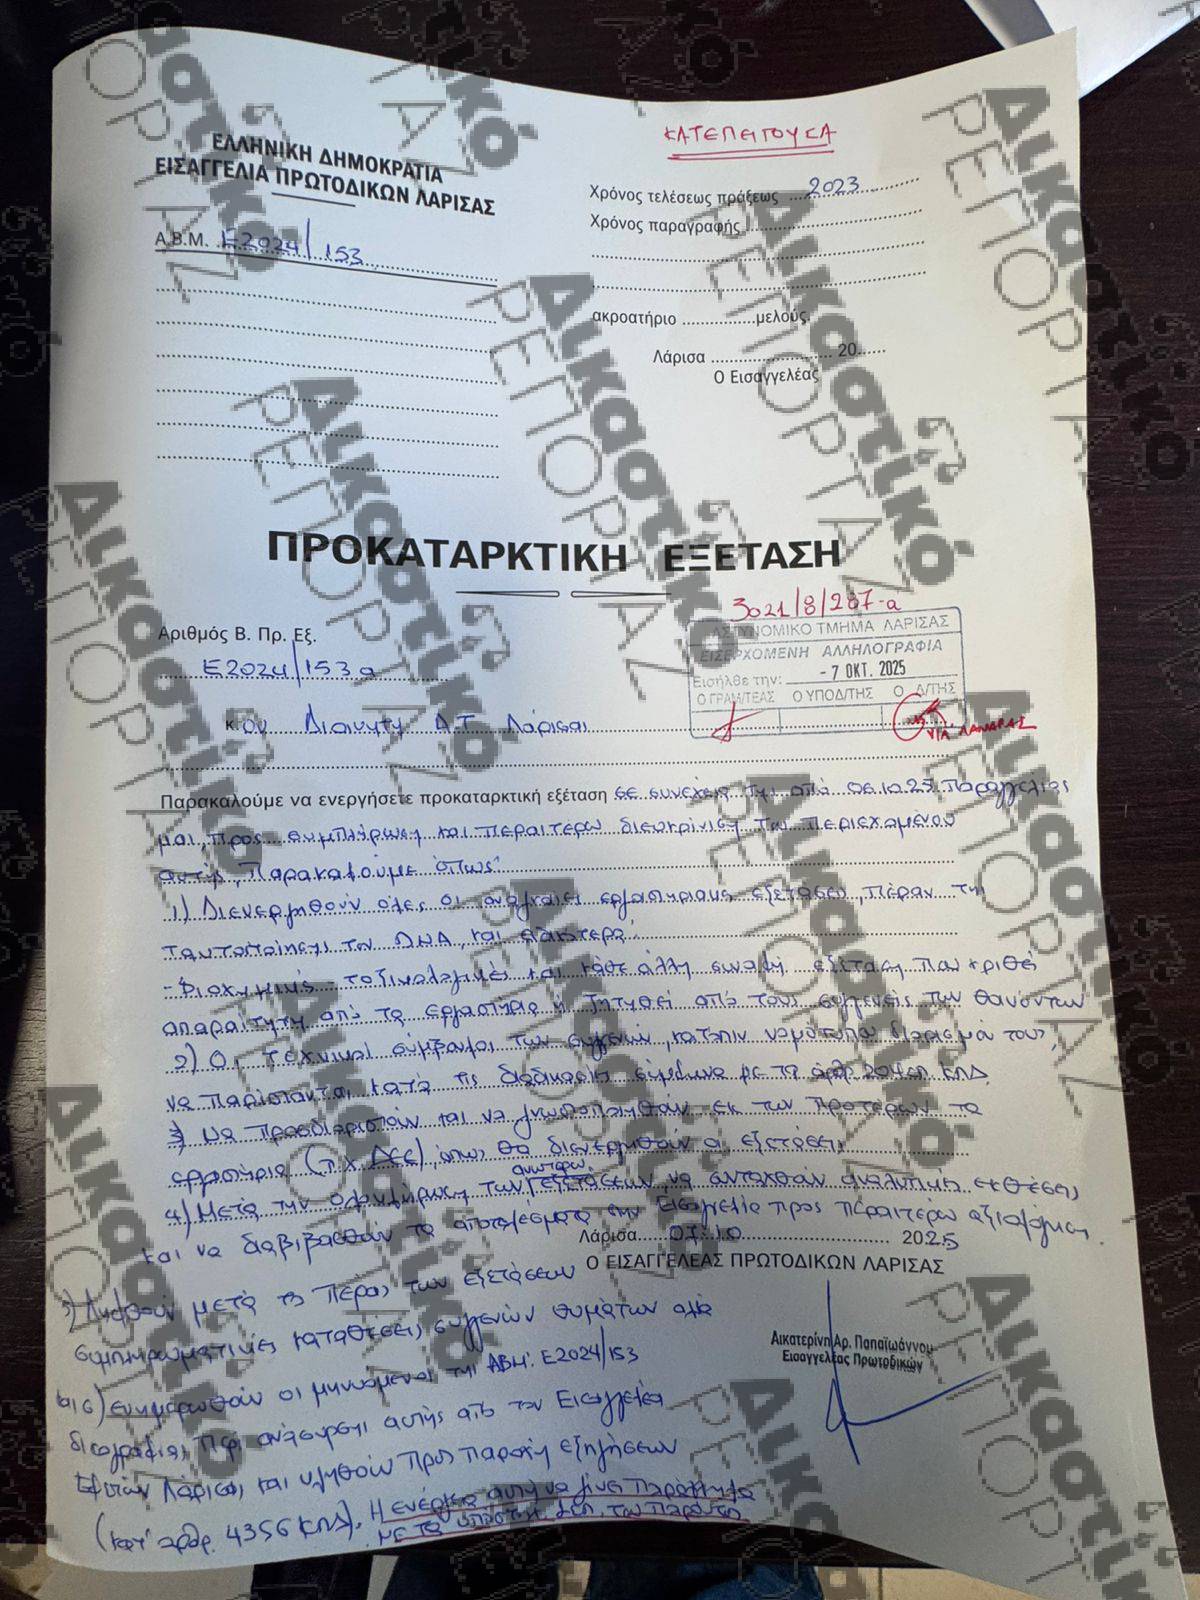 ΚΑΤΕΠΕΙΓΟΥΣΑ
ΕΛΛΗΝΙΚΗ ΔΗΜΟΚΡΑΤΙΑ
ΕΙΣΑΓΓΕΛΙΑ ΠΡΩΤΟΔΙΚΩΝ ΛΑΡΙΣΑΣ
Α.Β.Μ. Ε2024/153
Χρόνος τελέσεως πράξεως 2023
Χρόνος παραγραφής
ακροατήριο ................μελούς.
Λάρισα ........................ 20......
Ο Εισαγγελέας
ΠΡΟΚΑΤΑΡΚΤΙΚΗ ΕΞΕΤΑΣΗ
3021/8/207-α
ΑΣΤΥΝΟΜΙΚΟ ΤΜΗΜΑ ΛΑΡΙΣΑΣ
ΕΙΣΕΡΧΟΜΕΝΗ ΑΛΛΗΛΟΓΡΑΦΙΑ
Εισήλθε την: - 7 ΟΚΤ. 2025
Ο ΓΡΑΜ/ΤΕΑΣ Ο ΥΠΟΔ/ΤΗΣ Ο Δ/ΤΗΣ
Αριθμός Β. Πρ. Εξ.
Ε2024/153α
κ. ον Διοικητή Α.Τ. Λάρισας
Παρακαλούμε να ενεργήσετε προκαταρκτική εξέταση σε συνέχεια της από 06.10.25 Παραγγελίας
μας, προς συμπλήρωση και περαιτέρω διευκρίνιση του περιεχομένου
αυτής, παρακαλούμε όπως:
1) Διενεργηθούν όλες οι αναγκαίες εργαστηριακές εξετάσεις, πέραν της
ταυτοποίησης του DNA, και ειδικότερα:
- Βιοχημικές - τοξικολογικές και κάθε άλλη συναφή εξέταση που κριθεί
απαραίτητη από το εργαστήριο ή ζητηθεί από τους συγγενείς των θανόντων
2) Οι τεχνικοί σύμβουλοι των συγγενών, κατόπιν νομότυπου διορισμού τους,
να παρίστανται κατά τις διαδικασίες σύμφωνα με τα άρθρ. 204 επ ΚΠΔ
3) Να προσδιοριστούν και να γνωστοποιηθούν εκ των προτέρων τα
εργαστήρια (π.χ ΔΕΕ), όπου θα διενεργηθούν οι εξετάσεις
4) Μετά την ολοκλήρωση των ανωτέρω εξετάσεων, να συνταχθούν αναλυτικές εκθέσεις
και να διαβιβασθούν τα αποτελέσματα στην Εισαγγελία προς περαιτέρω αξιολόγηση.
Λάρισα 07.10 2025
Ο ΕΙΣΑΓΓΕΛΕΑΣ ΠΡΩΤΟΔΙΚΩΝ ΛΑΡΙΣΑΣ
5) Ληφθούν μετά το πέρας των εξετάσεων
συμπληρωματικές καταθέσεις συγγενών θυμάτων αλλά
και 6) ενημερωθούν οι μηνυόμενοι της ΑΒΜ: Ε2024/153
δικογραφίας περί ανάσυρσης αυτής από τον Εισαγγελέα
Εφετών Λάρισας και κληθούν προς παροχή εξηγήσεων
(κατ' άρθρ. 43§6 ΚΠΔ). Η ενέργεια αυτή να γίνει παράλληλα
με τα υπό στοιχ. του παρόντος
Αικατερίνη Αρ. Παπαϊωάννου
Εισαγγελέας Πρωτοδικών
Δικαστικό
ΡΕΠΟΡΤΑΖ